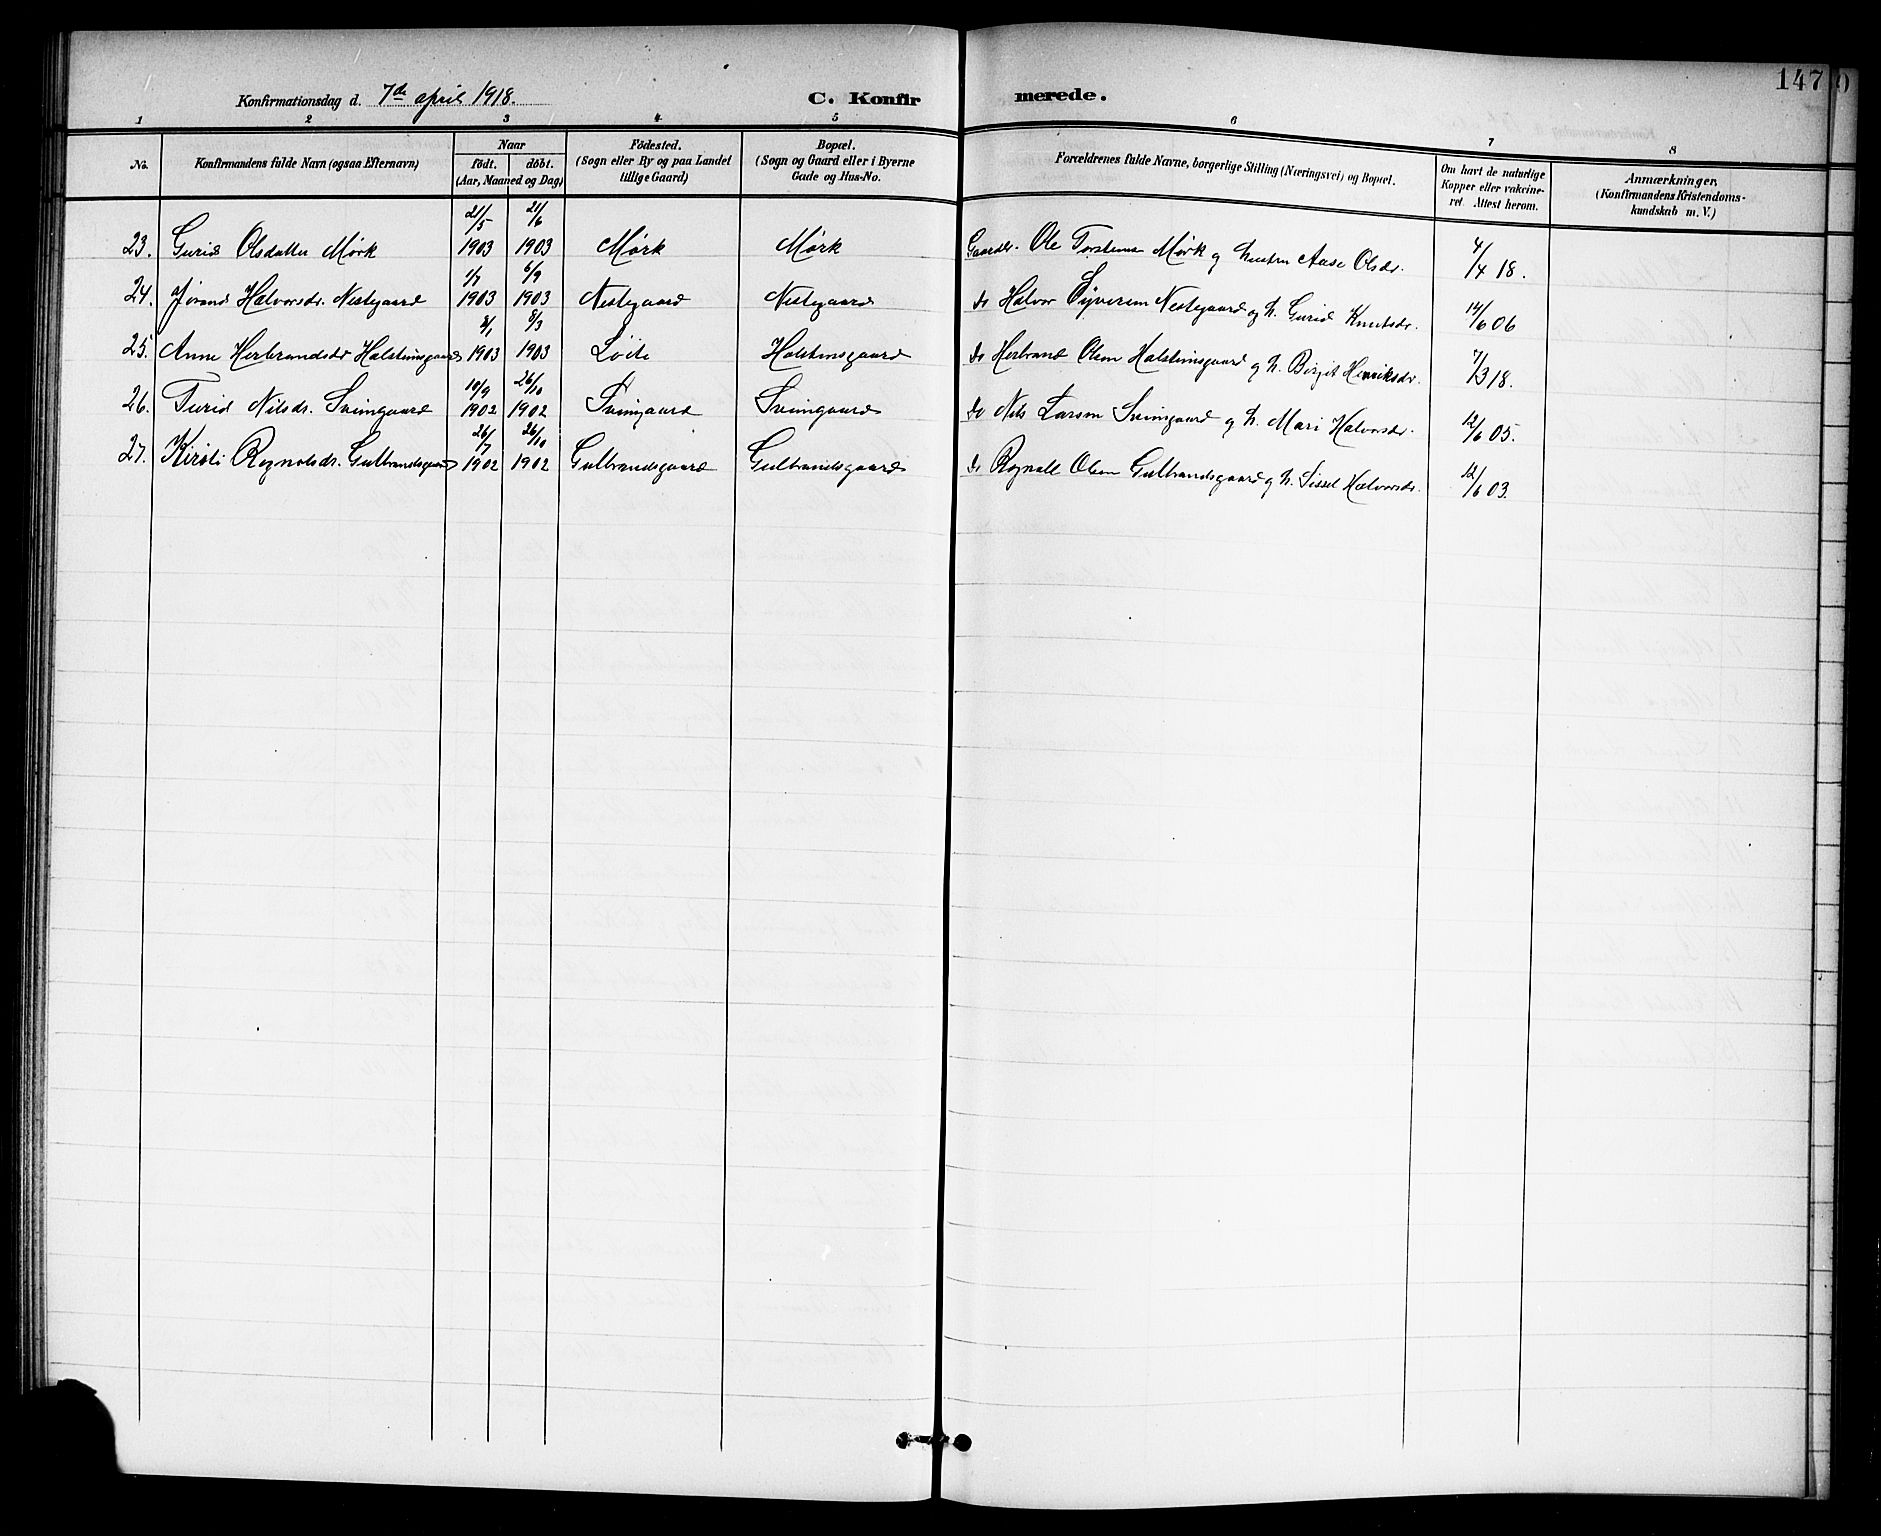 147
Konfirmationsdag d. 7de april 1918. C. Konfirmerede.
1 2 3 4 5 6 7 8
No. Konfirmandens fulde Navn (ogsaa Efternavn) Naar födt. döbt. (Aar, Maaned og Dag) Födested. (Sogn eller By og paa Landet tillige Gaard) Bopæl. (Sogn og Gaard eller i Byerne Gade og Hus-No. Forældrenes fulde Navne, borgerlige Stilling (Næringsvei) og Bopæl. Om havt de naturlige Kopper eller vakcineret. Attest herom. Anmærkninger. (Konfirmandens Kristendomskundskab m. V.)
23. Gurid Olsdatter Mørk 21/5 1903 21/6 1903 Mørk Mørk Gaardbr. Ole Torstensen Mørk og hustru Aase Olsdr. 4/4 18.
24. Jørand Halvorsdr. Nestegaard 1/7 1903 6/9 1903 Nestegaard Nestegaard do Halvor Syversen Nestegaard og h. Gurid Knutsdr. 14/6 06
25. Anne Herbrandsdr Halstensgaard 8/1 1903 8/3 1903 Löite Halstensgaard do Herbrand Olsen Halstensgaard og h. Birgit Henriksdr. 7/3 18.
26. Turid Nilsdr. Sveingaard 10/9 1902 26/10 1902 Sveingaard Sveingaard do Nils Larsen Sveingaard og h. Mari Halvorsdr. 12/6 05.
27. Kirsti Rognaldsdr. Gulbrandsgaard 26/7 1902 26/10 1902 Gulbrandsgaard Gulbrandsgaard do Rognald Olsen Gulbrandsgaard og h. Sissel Halvorsdr. 12/6 03.